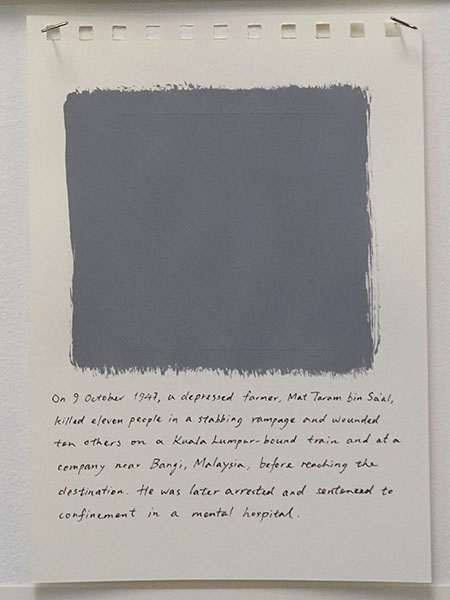 On 9 October 1947, a depressed farmer, Mat Taram bin Sa'al,
killed eleven people in a stabbing rampage and wounded
ten others on a Kuala Lumpur-bound train and at a
company near Bangi, Malaysia, before reaching the
destination. He was later arrested and sentenced to
confinement in a mental hospital.